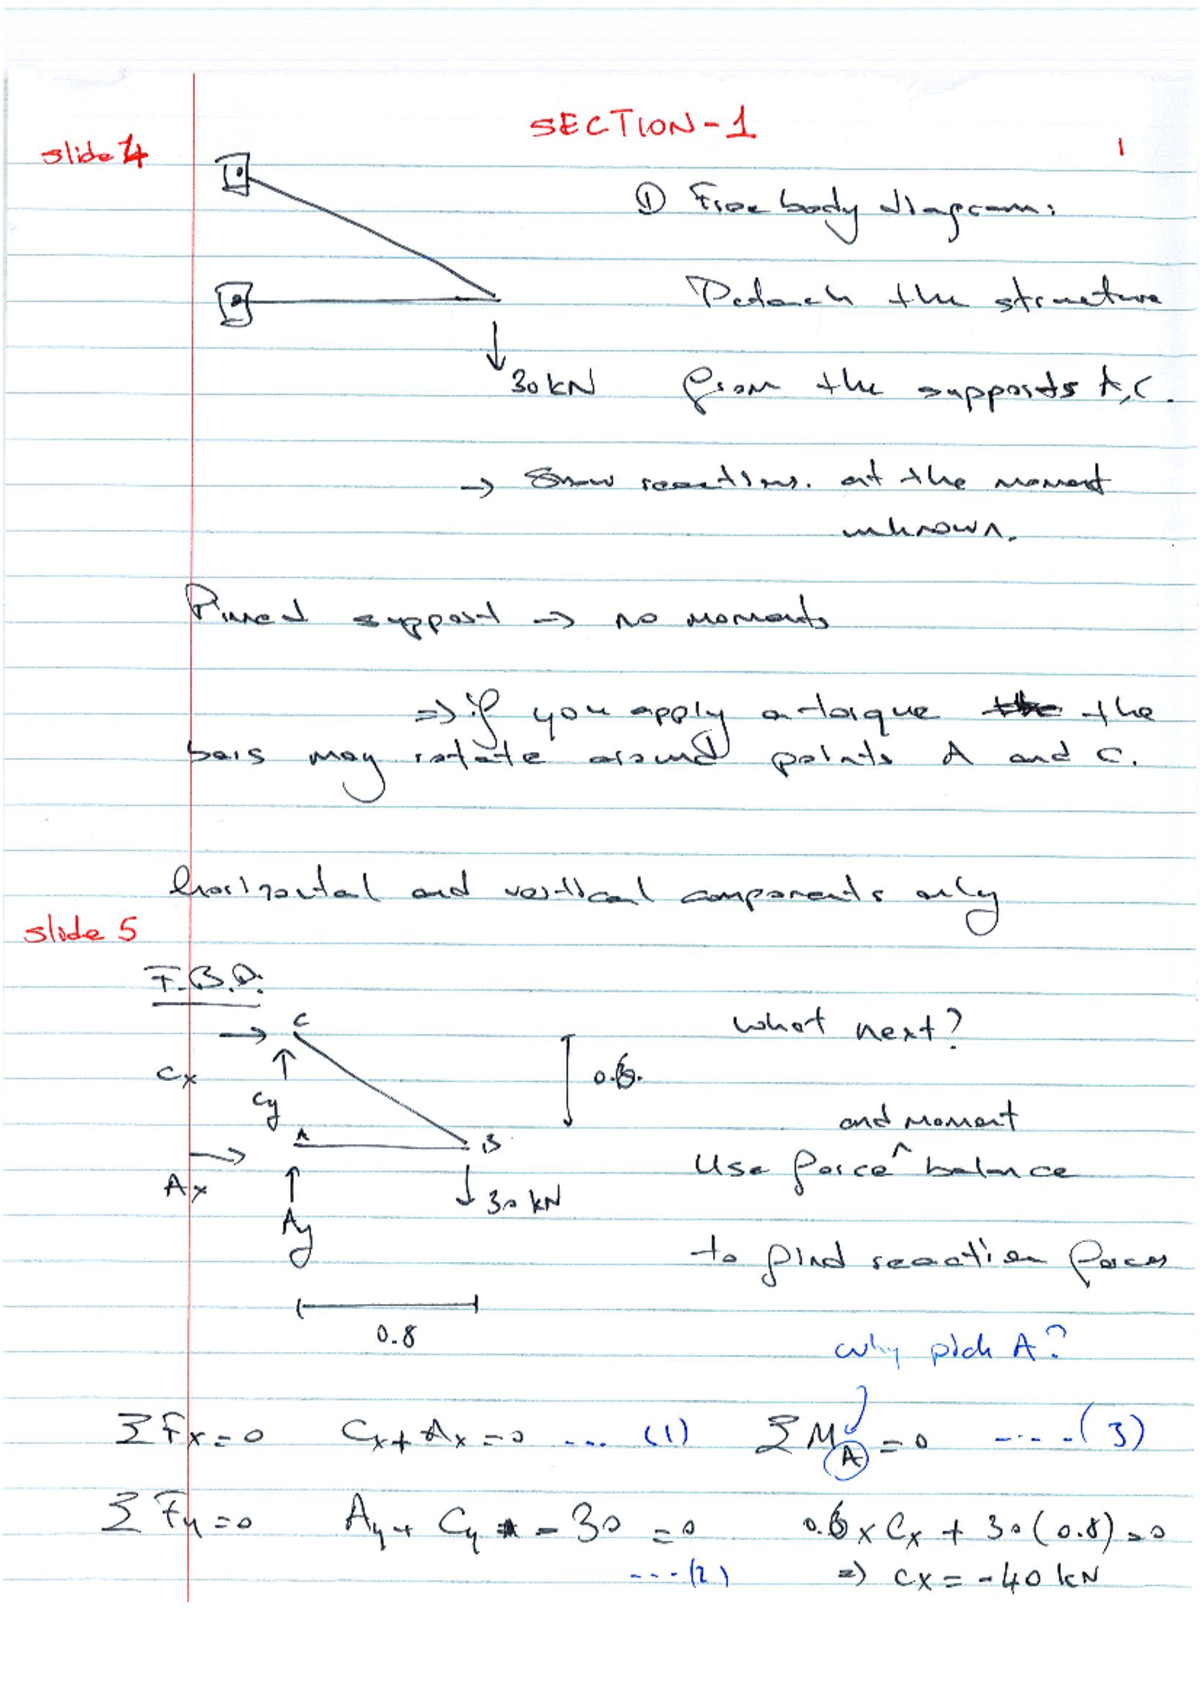 SECTION-1
1
slide 4
① Free body diagram:
Detach the structure
30 kN from the supports A,C.
→ Show reactions. at the moment
unknown.
Pinned support → no moments
⇒ if you apply a torque the
bars may rotate around points A and C.
horizontal and vertical components only
slide 5
F.B.D:
C
what next?
Cx
Cy
0.6
and moment
A
B
Use force ^ balance
Ax
30 kN
Ay
to find reaction forces
0.8
why pick A?
ΣFx=0 Cx+Ax=0 ... (1) ΣMA=0 ----(3)
ΣFy=0 Ay+Cy-30=0 0.6xCx+30(0.8)=0
---(2) ⇒ Cx=-40 kN